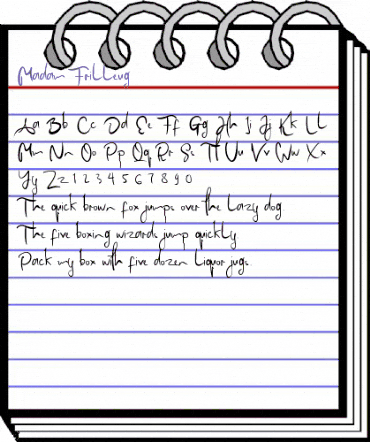 Madam Frilleug
Aa Bb Cc Dd Ee Ff Gg Hh Ii Jj Kk Ll
Mm Nn Oo Pp Qq Rr Ss Tt Uu Vv Ww Xx
Yy Zz 1 2 3 4 5 6 7 8 9 0
The quick brown fox jumps over the lazy dog
The five boxing wizards jump quickly
Pack my box with five dozen liquor jugs.